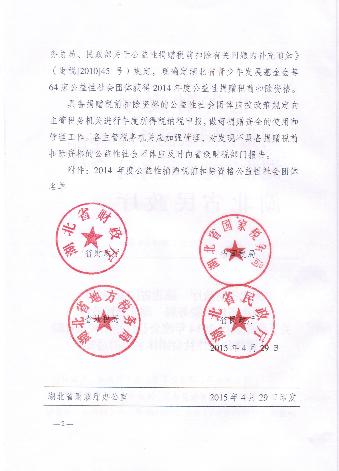 务总局、民政部关于公益性捐赠税前扣除有关问题的补充通知》
（财税[2010]45 号）规定，现确定湖北省青少年发展基金会等
64 家公益性社会团体获得 2014 年度公益性捐赠税前扣除资格。
具备捐赠税前扣除资格的公益性社会团体应按政策规定向
主管税务机关进行年度所得税纳税申报，做好
管理工作。各主管税务机关应加强管理，对发现不具备捐赠税前
扣除资格的公益性社会团体应及时向省级财税部门报告。
附件：2014 年度公益性捐赠税前扣除资格公益性社会团体
名单
湖北省财政厅
湖北省国家税务局
湖北省地方税务局
湖北省民政厅
2015 年 4 月 29 日
湖北省财政厅办公室
2015 年 4 月 29 日印发
—2—